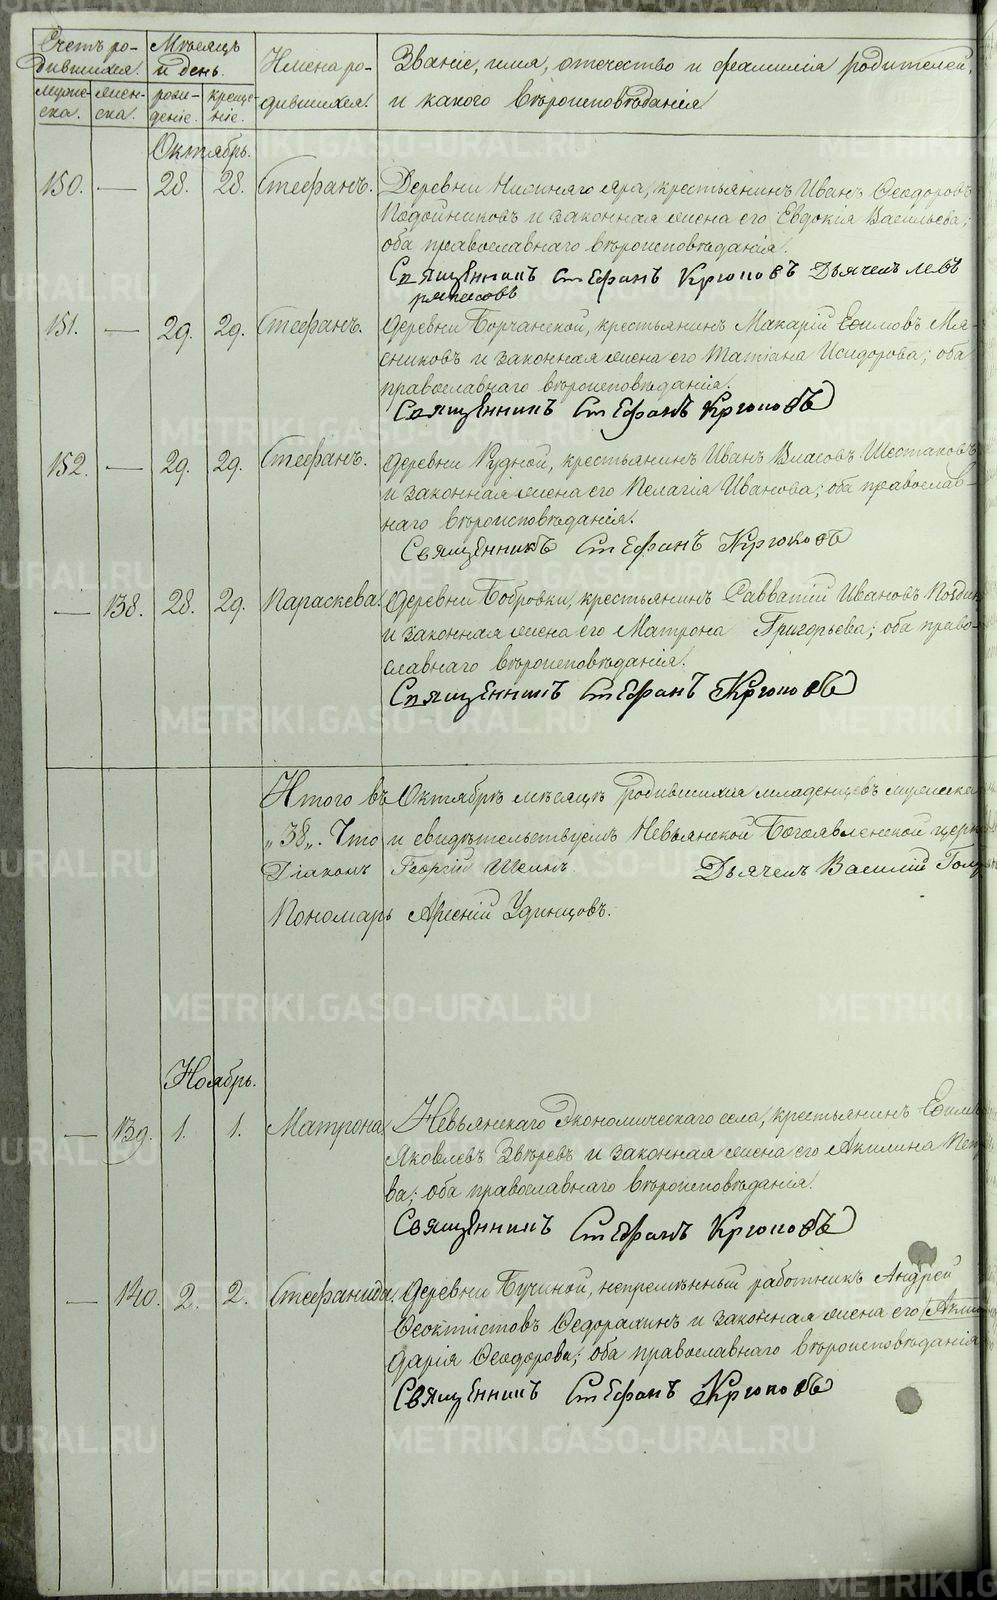 Счетъ ро-
дившихся.
Мѣсяцъ
и день.
Имена ро-
дившихся.
Званіе, имя, отчество и фамилія родителей,
и какого вѣроисповѣданія
муже-
ска.
жен-
ска.
рож-
деніе.
креще-
ніе.
Октябрь.
150. — 28. 28. Стефанъ. Деревни Нижняго яра, крестьянинъ Иванъ Ѳеодоровъ
Подойниковъ и законная жена его Евдокія Васильева;
оба православнаго вѣроисповѣданія.
Священникъ Стефанъ Крюковъ Дьячекъ Левъ
151. — 29. 29. Стефанъ. Деревни Борчанской, крестьянинъ Макарій Ефимовъ Мя-
сниковъ и законная жена его Татіана Исидорова; оба
православнаго вѣроисповѣданія.
Священникъ Стефанъ Крюковъ
152. — 29. 29. Стефанъ. Деревни Рудной, крестьянинъ Иванъ Власовъ Шестаковъ
и законная жена его Пелагія Иванова; оба православ-
наго вѣроисповѣданія.
Священникъ Стефанъ Крюковъ
— 138. 28. 29. Параскева. Деревни Бобровки, крестьянинъ Савватій Ивановъ
и законная жена его Матрона Григорьева; оба право-
славнаго вѣроисповѣданія.
Священникъ Стефанъ Крюковъ
Итого въ Октябрѣ мѣсяцѣ родившихся младенцевъ мужеска
„38„. Что и свидѣтельствуемъ Невьянской Богоявленской церк
Діаконъ Георгій Дьячекъ Василій
Пономарь Арсеній Удинцовъ.
Ноябрь.
— 139. 1. 1. Матрона. Невьянскаго Экономическаго села, крестьянинъ Ефимъ
Яковлевъ Звѣревъ и законная жена его Акилина Пет
ва; оба православнаго вѣроисповѣданія.
Священникъ Стефанъ Крюковъ
— 140. 2. 2. Стефанида. Деревни Бучиной, непремѣнный работникъ Андрей
Ѳеоктистовъ и законная жена его
Дарія Ѳеодорова; оба православнаго вѣроисповѣданія
Священникъ Стефанъ Крюковъ
METRIKI.GASO-URAL.RU